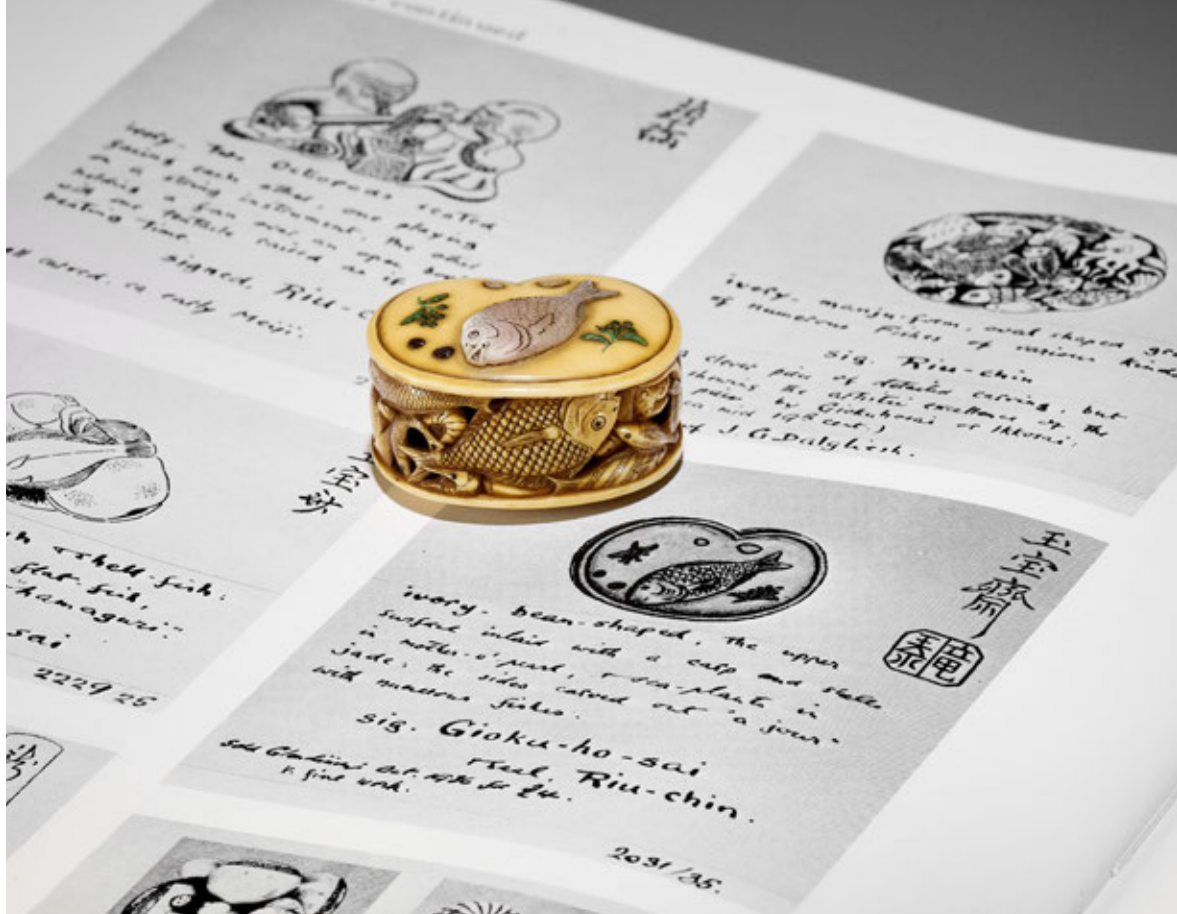 continued
ivory. Two Octopuses seated
facing each other, one playing
on a string instrument, the other
holding a fan over an open
with one tentacle raised as if
beating time.
signed, Riu-c
carved, ca early Meiji.
ivory- manju-form, oval shaped
of numerous fishes of various kinds
sig. Riu-chin
clever pair of detailed carving, but
showing the artistic excellence of the
by Giokuhosai or Ikkosai.
mid 19th cent.)
J. G. Dalgliesh.
玉宝斎
shell-fish,
flat-fish,
"hamaguri"
sai
2229 25
玉宝齋
ivory- bean-shaped, the upper
surface inlaid with a carp and shells
in mother-o'-pearl, & sea-plants in
jade; the sides carved out 'a jour'
with numerous fishes.
sig. Gioku-ho-sai
& seal, Riu-chin.
fine work.
2031/35.